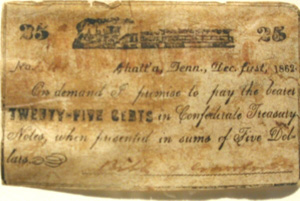 25 25
No. Chatt'a, Tenn., Dec. first, 1862.
On demand I promise to pay the bearer
TWENTY-FIVE CENTS in Confederate Treasury
Notes, when presented in sums of Five Dol-
lars.